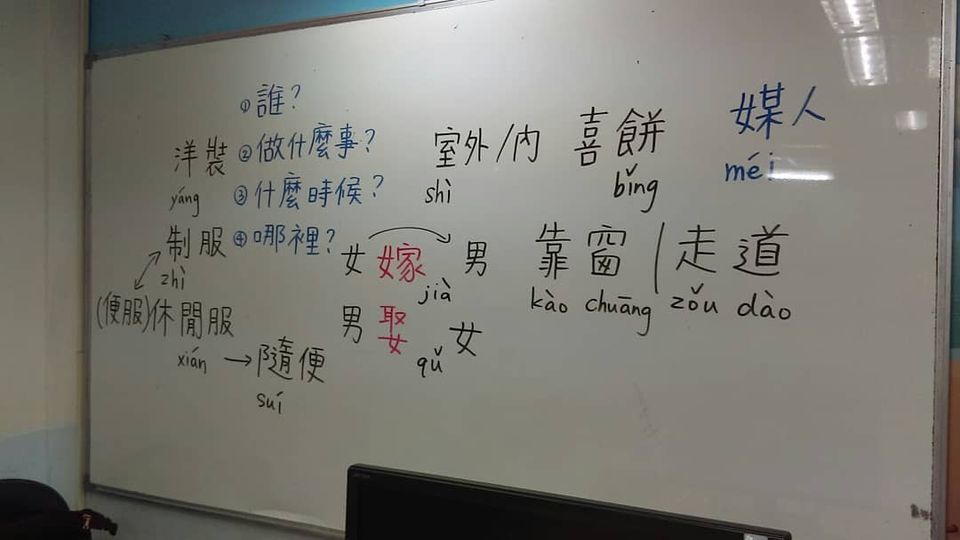 ① 誰？
② 做什麼事？
③ 什麼時候？
④ 哪裡？
洋裝
yáng
制服
zhì
(便服)休閒服
xián
→ 隨便
suí
室外/內
shì
喜餅
bǐng
媒人
méi
女 嫁 男
jià
男 娶 女
qǔ
靠窗 | 走道
kào chuāng zǒu dào